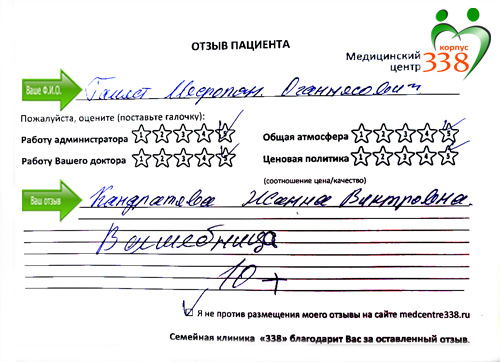 ОТЗЫВ ПАЦИЕНТА
Медицинский центр
корпус
338
Ваше Ф.И.О.
Месропян Оганнесович
Пожалуйста, оцените (поставьте галочку):
Работу администратора 1 2 3 4 5
Общая атмосфера 1 2 3 4 5
Работу Вашего доктора 1 2 3 4 5
Ценовая политика 1 2 3 4 5
(соотношение цена/качество)
Ваш отзыв
Кандратьева Жанна Викторовна.
Волшебница
10 +
Я не против размещения моего отзывы на сайте medcentre338.ru
Семейная клиника «338» благодарит Вас за оставленный отзыв.